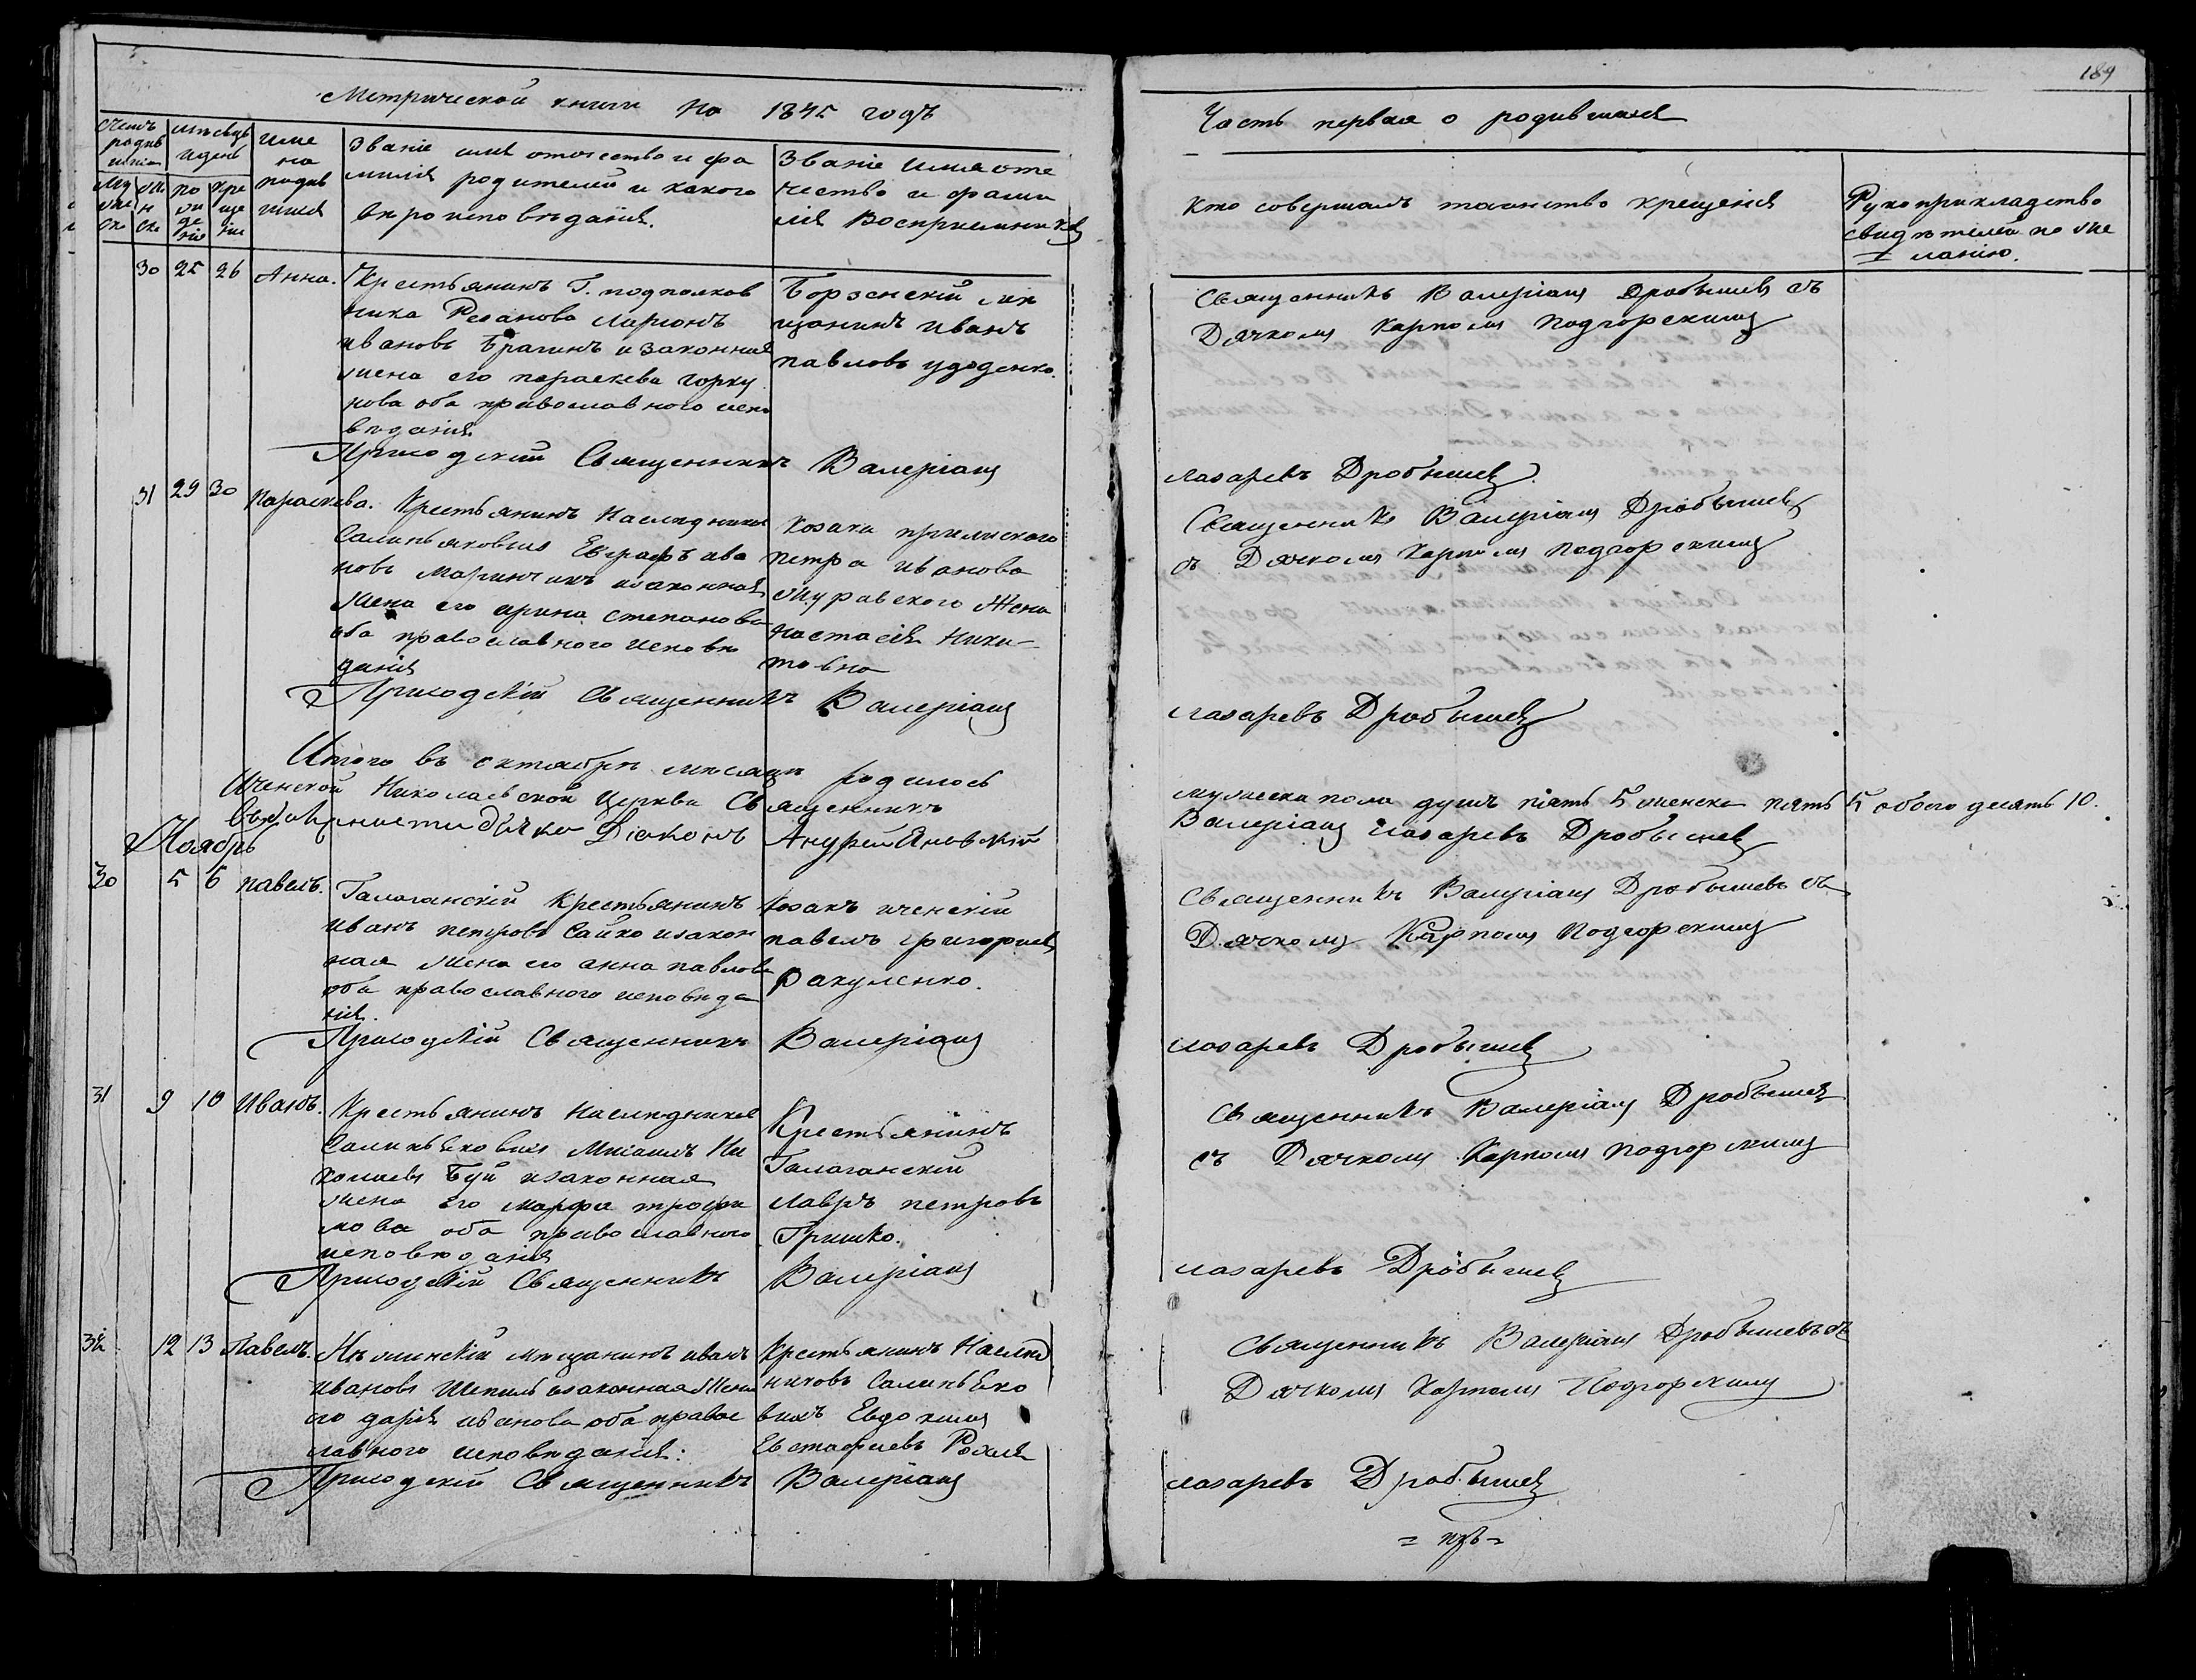 189
Метрической книги на 1845 годъ
Часть первая о родившихся
Счетъ родившихся
Мужеска
Женска
Мѣсяцъ и день
рожденія
крещенія
Имена родившихся
Званіе имя отечество и фа
милія родителей и какого
вѣроисповѣданія.
Званіе имя оте
чество и фами
лія Воспріемниковъ
Кто совершалъ таинство крещенія
Рукоприкладство
свидѣтелей по же
ланію.
30 25 26 Анна.
Крестьянинъ Г. подполков
ника Ларионъ
ивановъ Брагинъ и законная
жена его параскева
оба православного испо
вѣданія
Борзенскій мѣ
щанинъ иванъ
павловъ удоденко.
Священникъ Валеріанъ Дробышевъ съ
Дячкомъ Карпомъ Подгорскимъ
Приходскій Священникъ Валеріанъ
лазаревъ Дробышевъ.
31 29 30 Параскева.
Крестьянинъ Наслѣдниковъ
Евграфъ ива
новъ Маринчикъ изаконная
жена его ирина степанова
оба православного исповѣ
данія
Козака
петра иванова
Муравского Жена
Настасія Ники-
товна
Священникъ Валеріанъ Дробышевъ
съ Дячкомъ Карпомъ Подгорскимъ
Приходскій Священникъ Валеріанъ
лазаревъ Дробышевъ
Итого въ октябрѣ мѣсяцѣ родилось
мужеска пола душъ пять 5 женска пять 5 обоего десять 10.
Иченской Николаевской Церкви Священникъ
Валеріанъ лазаревъ Дробышевъ
Діаконъ Андрей Яновскій
Ноябрь
30 5 6 павелъ.
Галаганскій Крестьянинъ
иванъ петровъ Сайко изакон
ная жена его анна павлова
оба православного исповѣда
нія.
Козакъ иченскій
павелъ григориевъ
Ракуленко.
Священникъ Валеріанъ Дробышевъ съ
Дячкомъ Карпомъ Подгорскимъ
Приходскій Священникъ Валеріанъ
лазаревъ Дробышевъ
31 9 10 Иванъ.
Крестьянинъ Наслѣдниковъ
Михаилъ Ни
колаевъ Буй изаконная
жена его марфа трофи
мова оба православного
исповѣданія
Крестьянинъ
Галаганскій
лавръ петровъ
Гришко.
Священникъ Валеріанъ Дробышевъ
съ Дячкомъ Карпомъ Подгорскимъ
Приходскій Священникъ Валеріанъ
лазаревъ Дробышевъ
32 12 13 Павелъ.
Нѣжинскій мѣщанинъ иванъ
ивановъ изаконная Жена
его дарія иванова оба правос
лавного исповѣданія:
Крестьянинъ Наслѣд
никовъ
Евдокимъ
Евстафиевъ
Священникъ Валеріанъ Дробышевъ съ
Дячкомъ Карпомъ Подгорскимъ
Приходскій Священникъ Валеріанъ
лазаревъ Дробышевъ